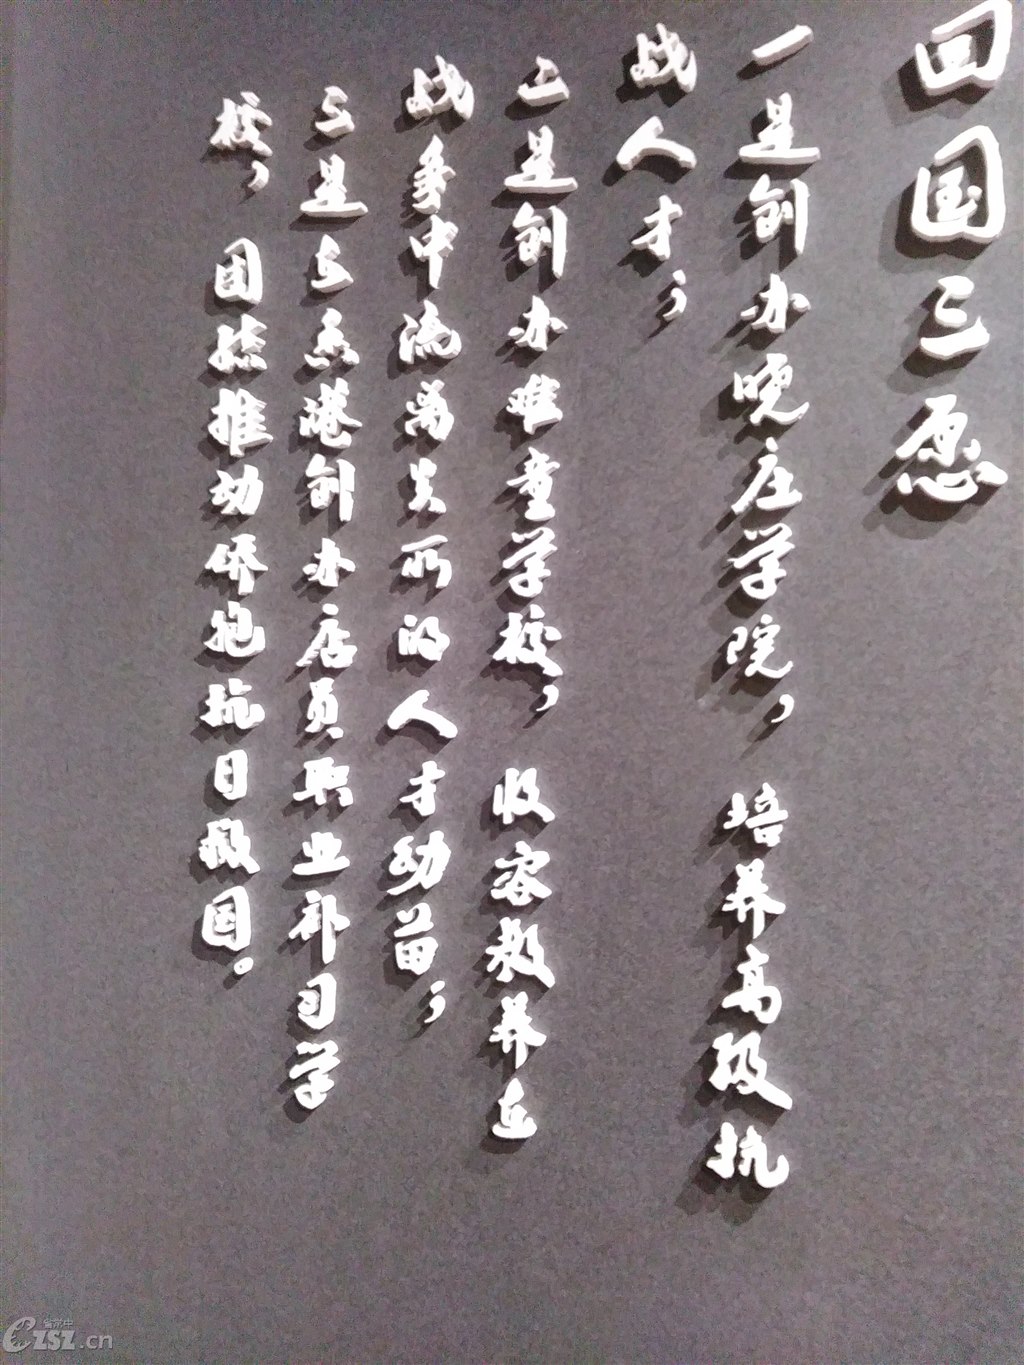 回国三愿
一是创办晓庄学院，培养高级抗
战人才；
二是创办难童学校，收容教养在
战争中流离失所的人才幼苗；
三是在香港创办店员职业补习学
校，团结推动侨胞抗日救国。
省常中
CZSZ.cn